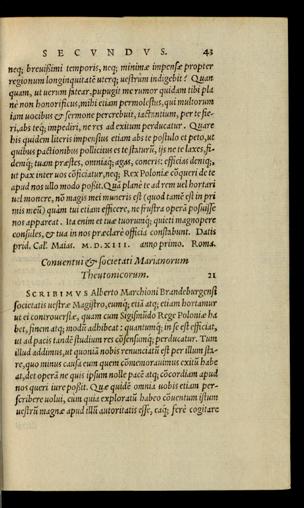 SECVNDVS. 43
neq; breuißimi temporis, neq; minimæ impensæ propter
regionum longinquitatẽ uterq; uestrũm indigebit? Quan
quam, ut uerum fatear, pupugit me rumor quidam tibi pla
nè non honorificus, mihi etiam permolestus, qui multorum
iam uocibus & sermone percrebuit, iactantium, per te fie-
ri, abs teq́; impediri, ne res ad exitum perducatur. Quare
his quidem literis impensius etiam abs te postulo et peto, ut
quibus pactionibus pollicitus es te staturũ, ijs ne te laxes, fi-
demq́; tuam præstes, omniaq́; agas, coneris: efficias deniq;,
ut pax inter uos cõficiatur, neq; Rex Poloniæ cõqueri de te
apud nos ullo modo poßit. Quã planè te ad rem uel hortari
uel monere, nõ magis mei muneris est (quod tamẽ est in pri
mis meũ) quàm tui etiam efficere, ne frustra operã posuisse
nos appareat. Ita enim et tuæ tuorumq́; quieti magnopere
consules, & tua in nos præclarè officia constabunt. Datis
prid. Cal. Maias. M.D.XIII. anno primo. Roma.
Conuentui & societati Marianorum
Theutonicorum. 21
SCRIBIMVS Alberto Marchioni Brandeburgensi
societatis uestræ Magistro, eumq́; etiã atq; etiam hortamur
ut ei controuersiæ, quam cum Sigismũdo Rege Poloniæ ha
bet, finem atq; modũ adhibeat: quantumq́; in se est efficiat,
ut ad pacis tandẽ studium res cõsensumq́; perducatur. Tum
illud addimus, ut quoniã nobis renunciatũ est per illum sta-
re, quo minus causa eum quem cõmemorauimus exitũ habe
at, det operã ne quis ipsum nolle pacẽ atq; cõcordiam apud
nos queri iure poßit. Quæ quidẽ omnia uobis etiam per-
scribere uolui, cum quia exploratũ habeo cõuentum istum
uestrũ magnæ apud illũ autoritatis esse, eaq́; ferè cogitare